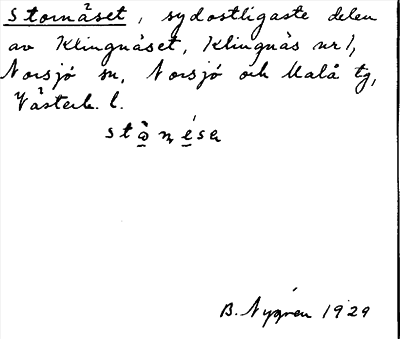 Stornäset, sydostligaste delen
av Klingnäset, Klingnäs nr 1,
Norsjö sn, Norsjö och Malå tg,
Västerb. l.
B. Nygren 1929